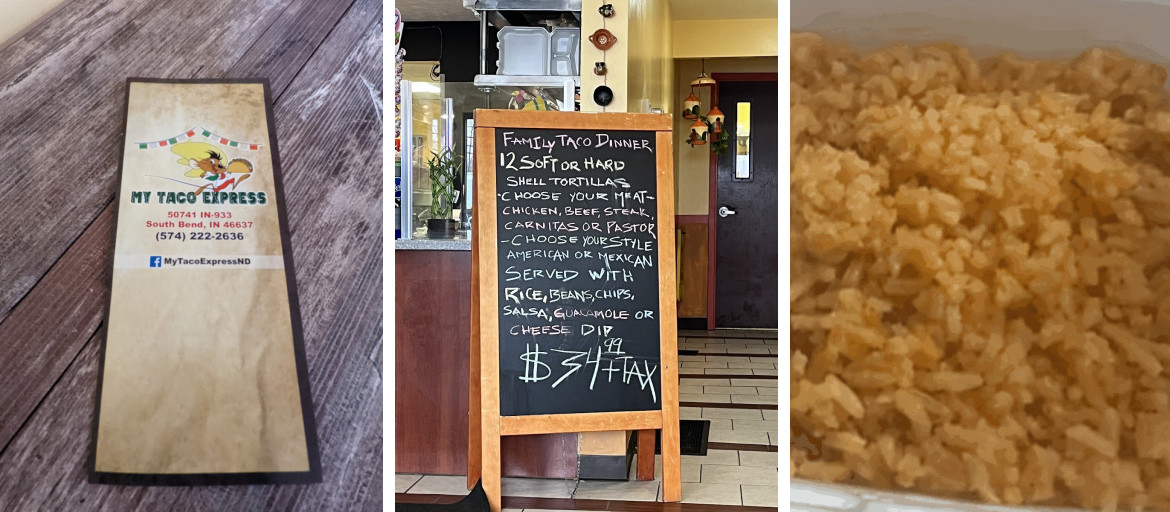 MY TACO EXPRESS
50741 IN-933
South Bend, IN 46637
(574) 222-2636
MyTacoExpressND
FAMILY TACO DINNER
12 SOFT OR HARD
SHELL TORTILLAS
-CHOOSE YOUR MEAT-
CHICKEN, BEEF, STEAK,
CARNITAS OR PASTOR
-CHOOSE YOUR STYLE
AMERICAN OR MEXICAN
SERVED WITH
RICE, BEANS, CHIPS,
SALSA, GUACAMOLE OR
CHEESE DIP
$34.99+TAX